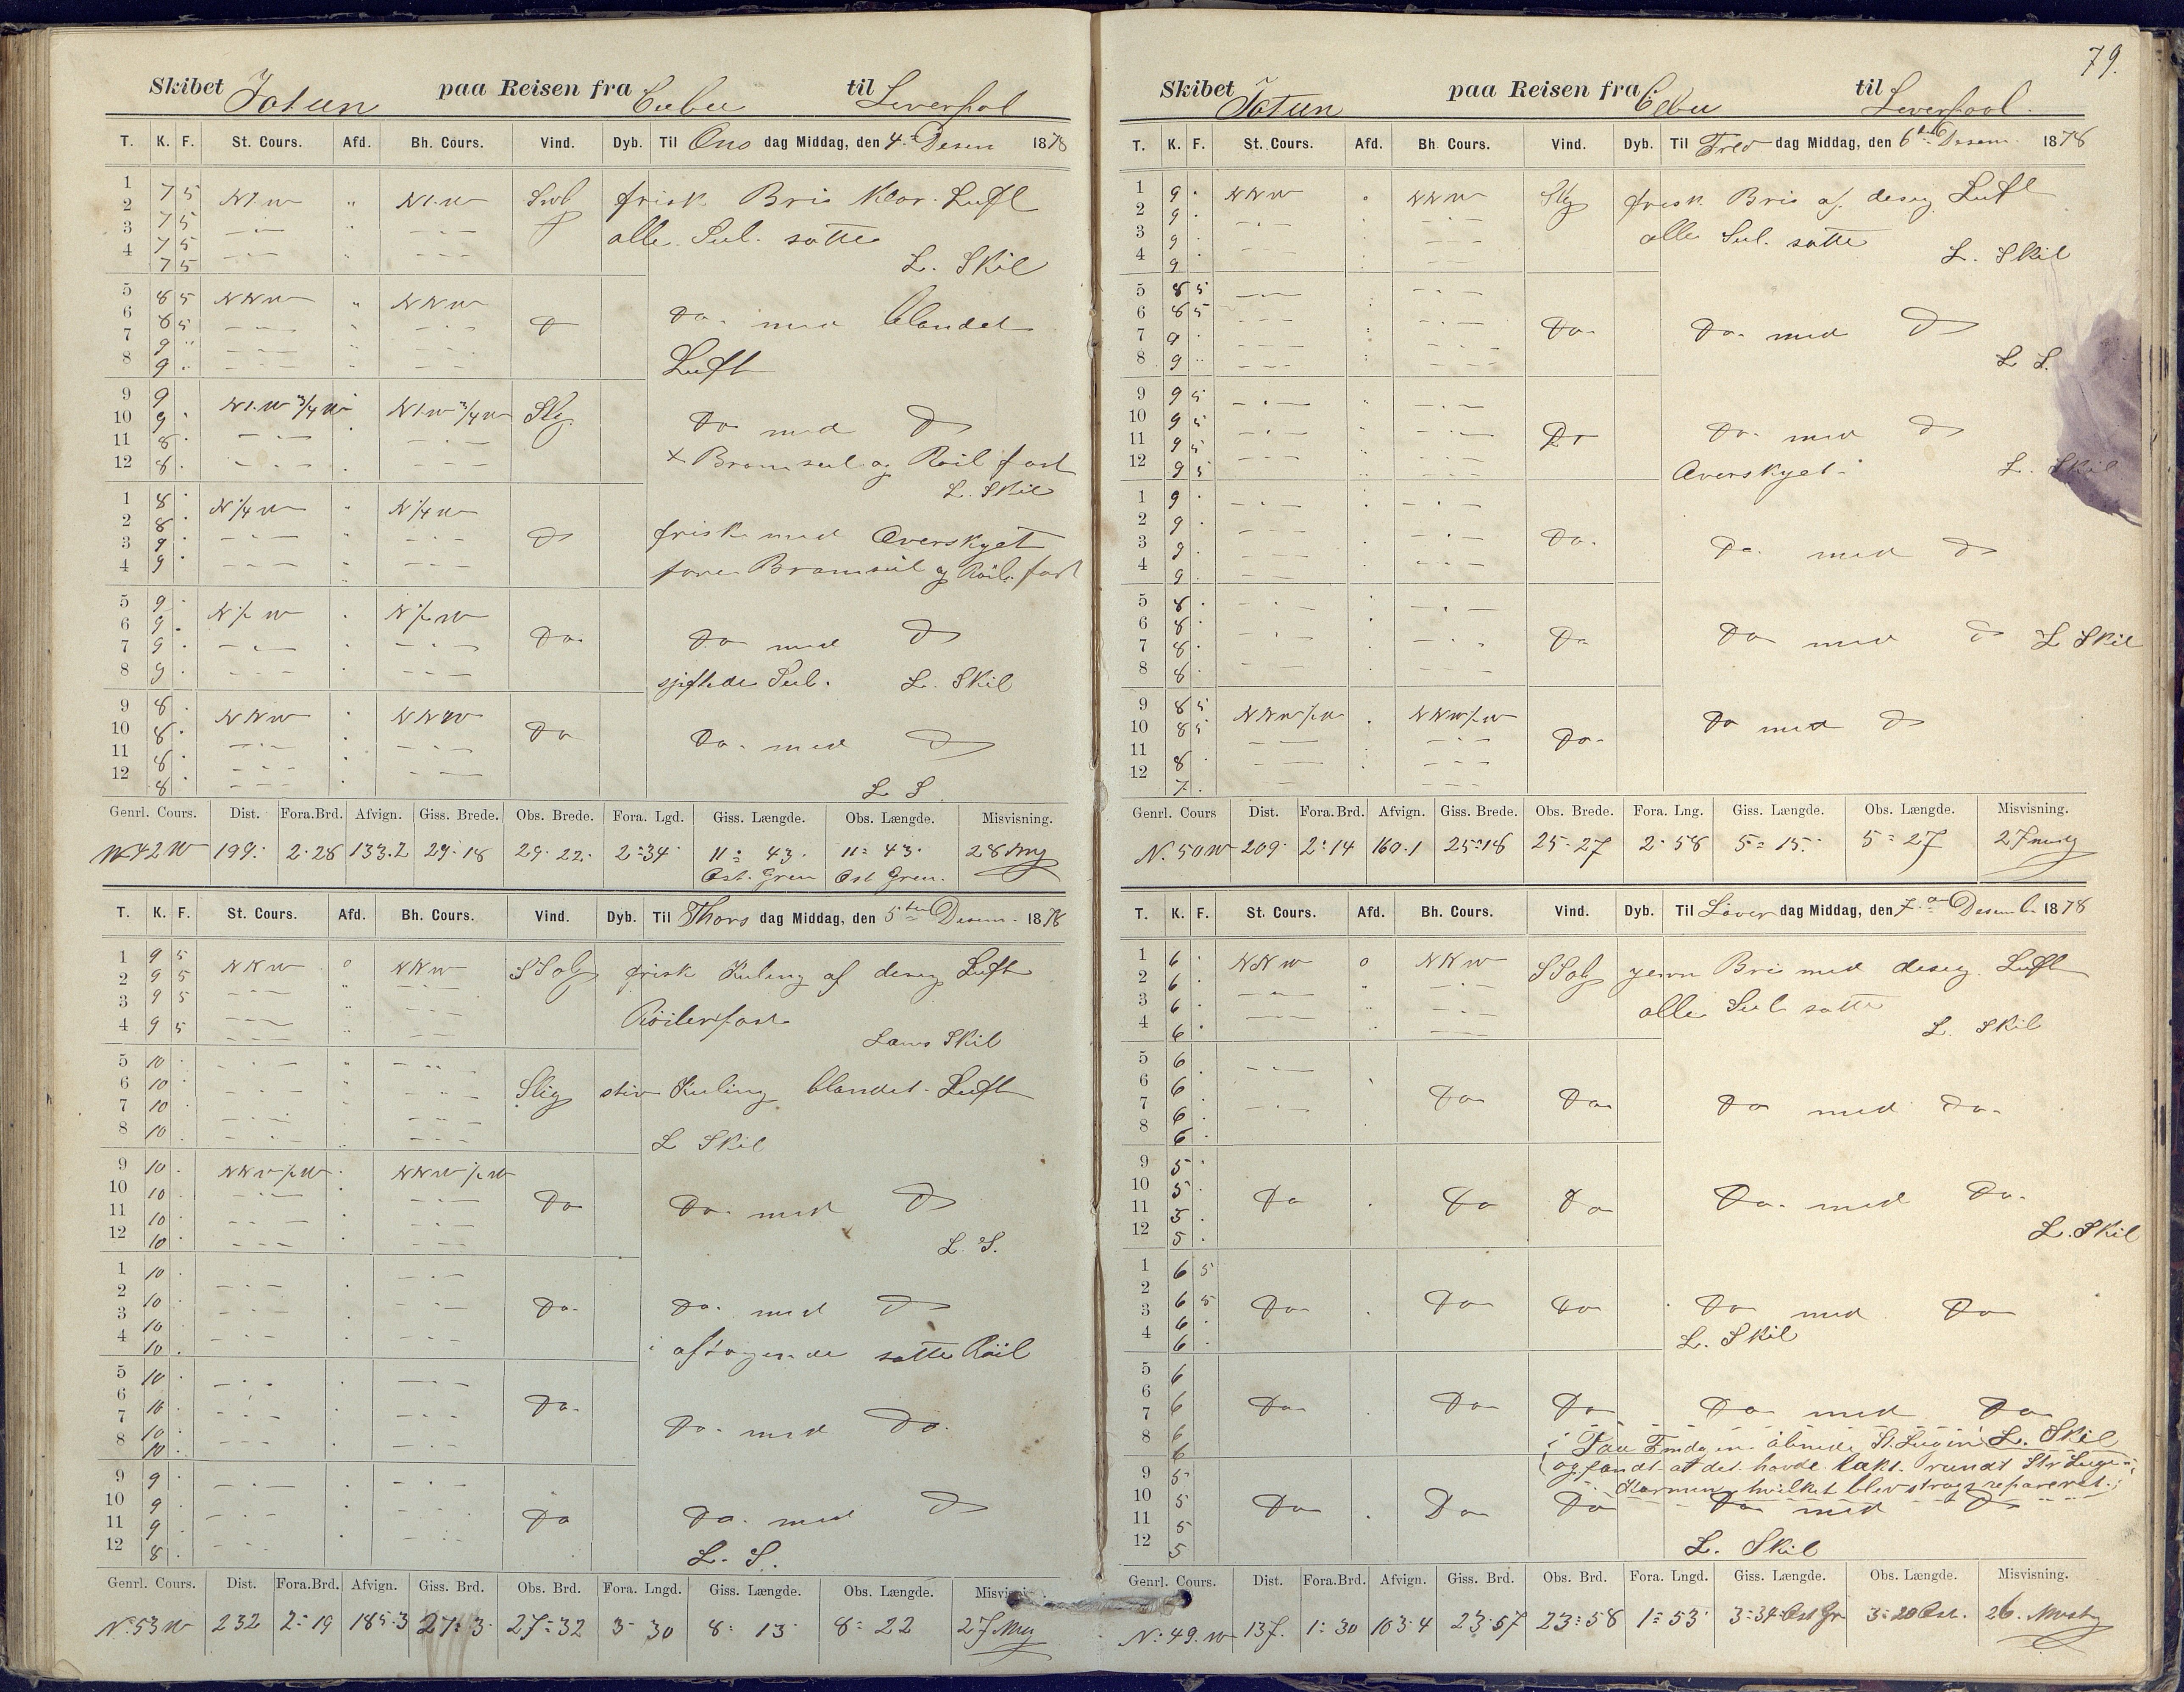 Skibet Jotun paa Reisen fra Cebu til Liverpol
T. K. F. St. Cours. Afd. Bh. Cours. Vind. Dyb. Til Ons dag Middag, den 4de Desem 1878
1 7 5 N1.W " N1.W frisk Bris klar Luft
2 7 5
3 7 5 alle Seil satte
4 7 5 L. Skil
5 8 5 NNW " NNW
6 8 5 Do med blandet
7 9
8 9 Luft
9 9 N1.W 3/4 W N1.W 3/4 W
10 9 Do med Do
11 8
12 8 Bramseil og Röil fast
L. Skil
1 8 N 1/4 W N 1/4 W
2 8 frisk med Overskyet
3 9
4 9 Bramseil og Röil fast
5 9 N ½ W N ½ W
6 9 Do Do med Do
7 9
8 9 sjiftede Seil. L. Skil
9 8 NNW NNW
10 8 Do Do med Do
11 8
12 8 L S
Genrl. Cours. Dist. Fora.Brd. Afvign. Giss. Brede. Obs. Brede. Fora. Lgd. Giss. Længde. Obs. Længde. Misvisning.
N 42 W 199 2 28 133.2 29 18 29 22 2 34 11 43 11 43 28
Ost. Gren Ost Gren.
T. K. F. St. Cours. Afd. Bh. Cours. Vind. Dyb. Til Thors dag Middag, den 5te Desem. 1878
1 9 5 NNW o NNW frisk Kuling af desig Luft
2 9 5
3 9 5 Röiler fast
4 9 5 Lars Skil
5 10
6 10 stiv Kuling blandet Luft
7 10
8 10 L Skil
9 10 NNW ½ W NNW ½ W
10 10 Do Do med Do
11 10
12 10 L. S.
1 10
2 10 Do. Do. med Do
3 10
4 10 aftagende satte Röil
5 10
6 10 Do. Do. med Do.
7 10
8 10
9 9
10 9 Do Do. med Do
11 9
12 8 L. S.
Genrl. Cours. Dist. Fora.Brd. Afvign. Giss. Brd. Obs. Brd. Fora. Lngd. Giss. Længde. Obs. Længde.
N 53 W 232 2 19 185.3 27 3 27 32 3 30 8 13 8 22 27
79.
Skibet Jotun paa Reisen fra Cebu til Liverpool.
T. K. F. St. Cours. Afd. Bh Cours. Vind. Dyb. Til Fre dag Middag, den 6te Desem. 1878
1 9 NNW NNW frisk Bris af desig Luft
2 9
3 9 alle Seil satte
4 9 L. Skil
5 8 5
6 8 5 Do Do med Do
7 9
8 9 L S.
9 9 5
10 9 5 Do Do med Do
11 9 5
12 9 5 Overskyet L. Skil
1 9
2 9 Do. Do med Do
3 9
4 9
5 8
6 8 Do Do med Do L Skil
7 8
8 8
9 8 5 NNW ½ W NNW ½ W Do med Do
10 8 5 Do
11 8
12 7
Genrl. Cours Dist. Fora.Brd. Afvign. Giss. Brede. Obs. Brede. Fora. Lng. Giss. Længde. Obs. Længde. Misvisning.
N. 50 W 209 2 14 160.1 25 18 25 27 2 58 5 15 5 27 27
T. K. F. St. Cours. Afd. Bh. Cours. Vind. Dyb. Til Löver dag Middag, den 7 Desemb. 1878
1 6 NNW o NNW Bris med desig Luft
2 6
3 6 alle Seil satte
4 6 L. Skil
5 6
6 6 Do Do Do med Do
7 6
8 6
9 5
10 5 Do Do Do Do. med Do.
11 5
12 5 L. Skil
1 6 5
2 6 5 Do Do Do Do med Do
3 6
4 6 L. Skil
5 6
6 6 Do Do Do Do med Do
7 6 åbnede L. Skil
8 6 og fandt at det havde lækt rundt
9 5 Karmen hvilket blev strags repareret.
10 5 Do Do Do Do med Do
11 5
12 5 L. Skil
Genrl. Cours. Dist. Fora.Brd. Afvign. Giss. Brd. Obs. Brd. Fora. Lngd. Giss. Længde. Obs. Længde. Misvisning.
N. 49. W 137. 1 30 103.4 23 57 23 58 1 53 3 34 Ost Gr 3 20 Ost. 26